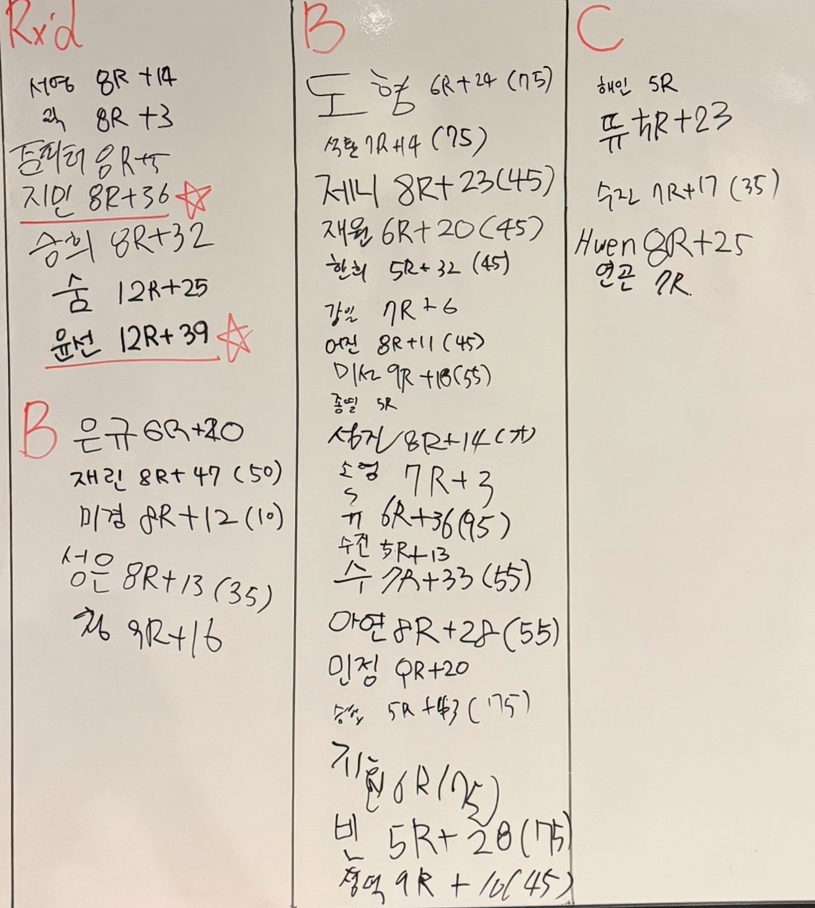 Rx'd
서영 8R +14
곽 8R +3
8R+5
지민 8R+36
승희 8R+32
숨 12R+25
윤선 12R+39
B
은규 6R+20
재린 8R+47 (50)
미경 8R+12 (10)
성은 8R+13 (35)
9R+16
B
도형 6R+24 (75)
7R+14 (75)
제니 8R+23 (45)
재원 6R+20 (45)
한희 5R+32 (45)
강일 7R+6
어진 8R+11 (45)
미선 9R+18 (55)
5R
성진 8R+14
소영 7R+3
6R+36 (95)
수진 5R+13
수 7R+33 (55)
아연 8R+28 (55)
민정 9R+20
5R+43 (75)
지현 6R (75)
빈 5R+28 (75)
9R+10 (45)
C
해인 5R
뜌 5R+23
수진 7R+17 (35)
Huen 8R+25
연곤 7R